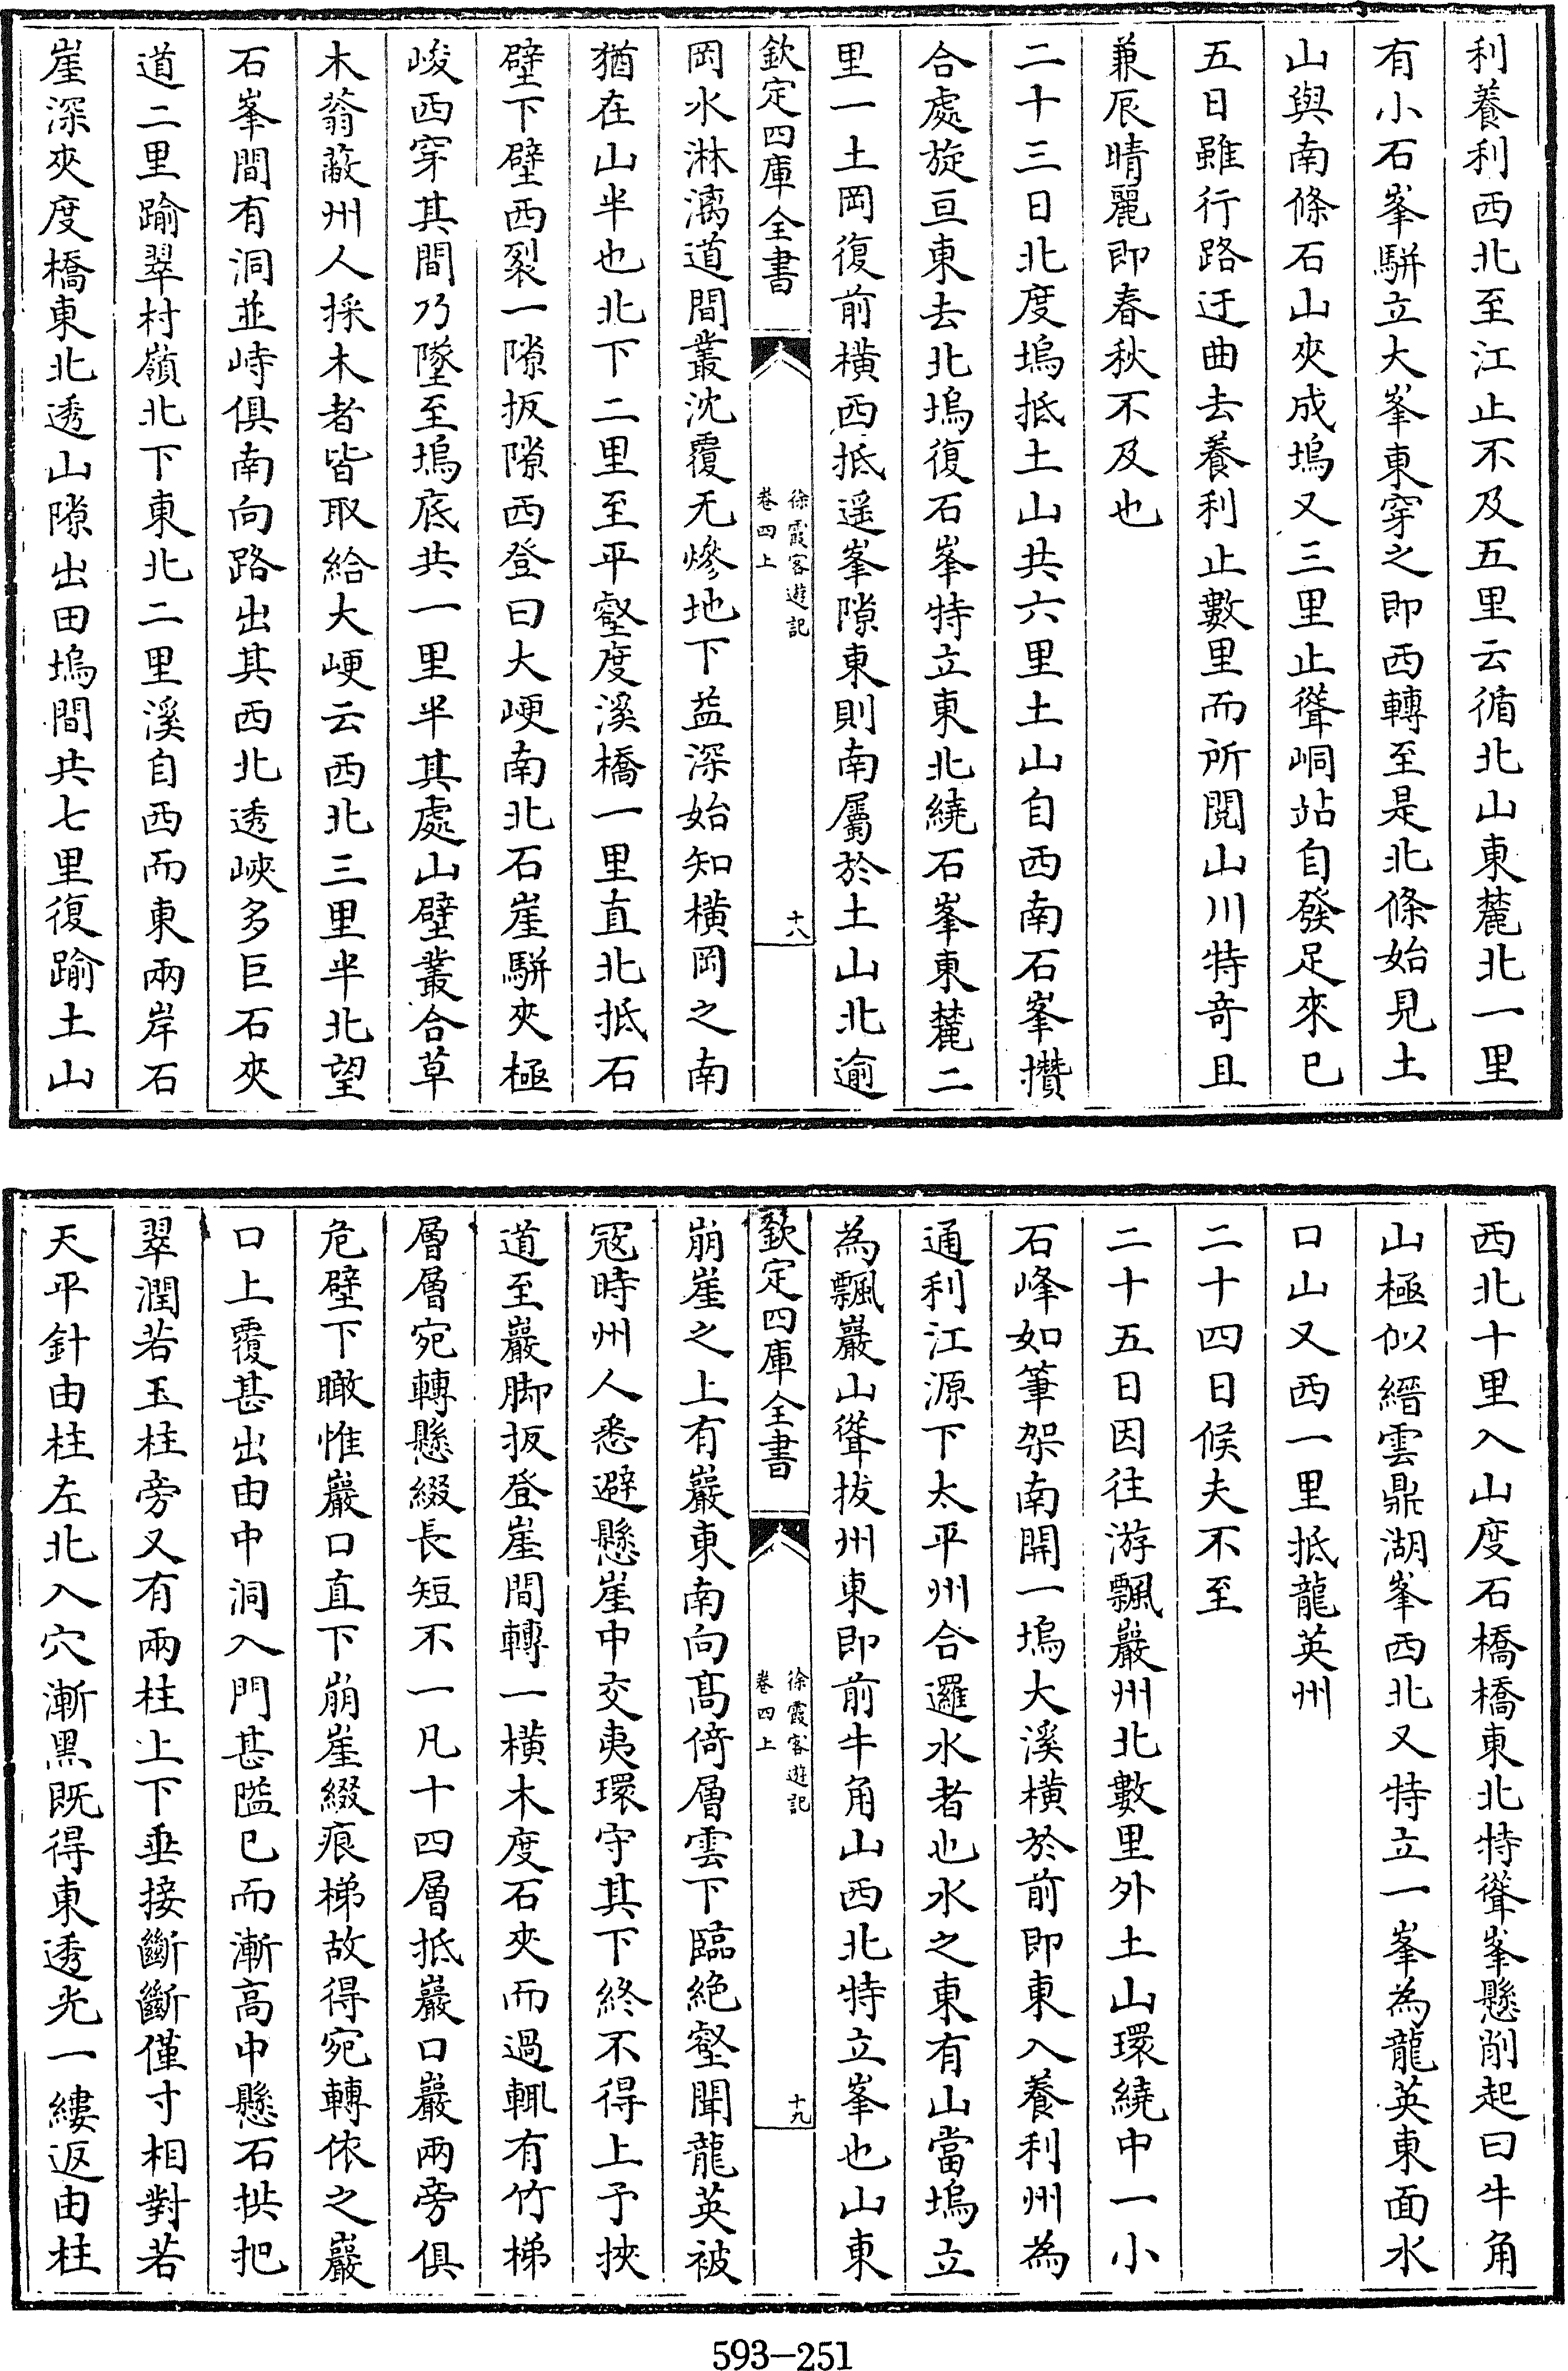 利養利西北至江止不及五里云循北山東麓北一里
有小石峯駢立大峯東穿之即西轉至是北條始見土
山與南條石山夾成塢又三里止聳峒站自發足來已
五日雖行路迂曲去養利止數里而所閱山川特奇且
兼辰晴麗即春秋不及也
二十三日北度塢抵土山共六里土山自西南石峯攢
合處旋亘東去北塢復石峯特立東北繞石峯東麓二
里一土岡復前橫西抵遥峯隙東則南屬於土山北逾
欽定四庫全書
徐霞客遊記
卷四上
十八
岡水淋漓道間叢沈覆无㣣地下益深始知橫岡之南
猶在山半也北下二里至平壑度溪橋一里直北抵石
壁下壁西裂一隙扳隙西登曰大峺南北石崖駢夾極
峻西穿其間乃墜至塢底共一里半其處山壁叢合草
木蓊蔽州人採木者皆取給大峺云西北三里半北望
石峯間有洞並峙俱南向路出其西北透峽多巨石夾
道二里踰翠村嶺北下東北二里溪自西而東兩岸石
崖深夾度橋東北透山隙出田塢間共七里復踰土山
西北十里入山度石橋橋東北特聳峯懸削起曰牛角
山極似縉雲鼎湖峯西北又特立一峯為龍英東面水
口山又西一里抵龍英州
二十四日候夫不至
二十五日因往游飄巖州北數里外土山環繞中一小
石峰如筆架南開一塢大溪橫於前即東入養利州為
通利江源下太平州合邏水者也水之東有山當塢立
為飄巖山聳拔州東即前牛角山西北特立峯也山東
欽定四庫全書
徐霞客遊記
卷四上
十九
崩崖之上有巖東南向髙倚層雲下臨絶壑聞龍英被
冦時州人悉避懸崖中交夷環守其下終不得上予挾
道至巖脚扳登崖間轉一橫木度石夾而過輒有竹梯
層層宛轉懸綴長短不一凡十四層抵巖口巖兩旁俱
危壁下瞰惟巖口直下崩崖綴痕梯故得宛轉依之巖
口上覆甚出由中洞入門甚隘已而漸高中懸石拱把
翠潤若玉柱旁又有兩柱上下垂接斷斷僅寸相對若
天平針由柱左北入穴漸黑既得東透光一縷返由柱
593-251